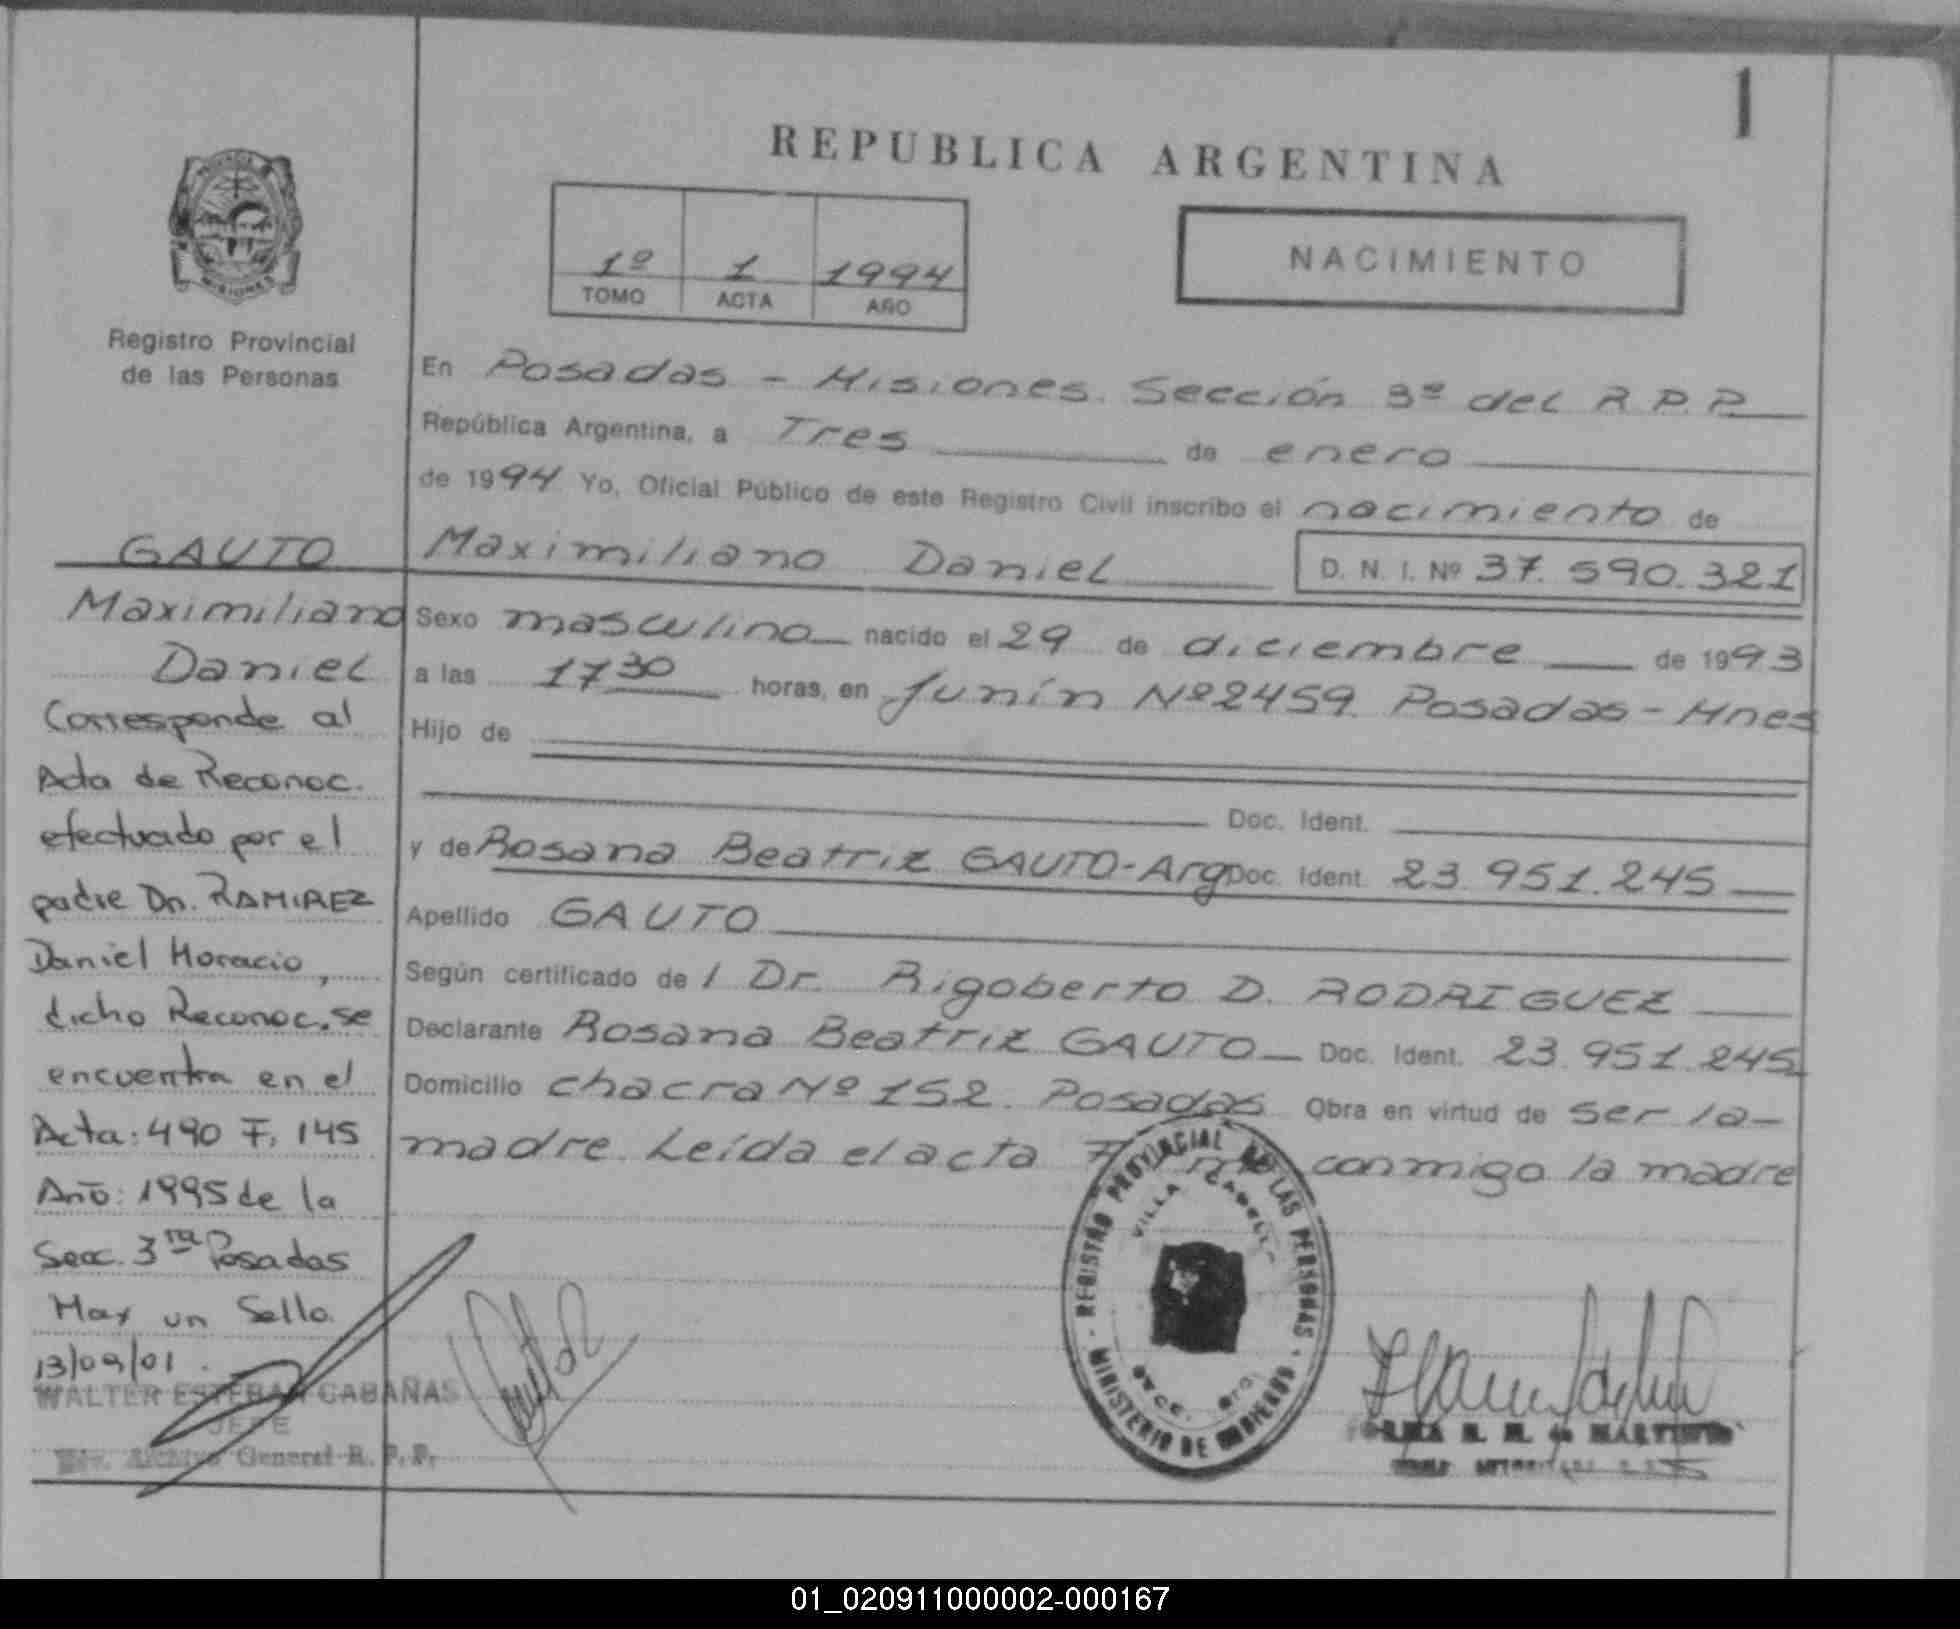 1
REPUBLICA ARGENTINA
1º 1 1994
TOMO ACTA AÑO
NACIMIENTO
MISIONES
Registro Provincial
de las Personas
En Posadas - Misiones. Sección 3º del R.P.P.
República Argentina, a Tres de enero
de 1994 Yo, Oficial Público de este Registro Civil inscribo el nacimiento de
Maximiliano Daniel D. N. I. Nº 37.590.321
Sexo masculino nacido el 29 de diciembre de 1993
a las 17 30 horas, en Junín Nº 2459. Posadas - Mnes
Hijo de
Doc. Ident.
y de Rosana Beatriz GAUTO - Arg Doc. Ident. 23.951.245
Apellido GAUTO
Según certificado de l Dr. Rigoberto D. RODRIGUEZ
Declarante Rosana Beatriz GAUTO Doc. Ident. 23.951.245
Domicilio chacra Nº 152. Posadas Obra en virtud de ser la-
madre. Leída el acta conmigo la madre
GAUTO
Maximiliano
Daniel
Corresponde al
Acta de Reconoc.
efectuado por el
padre Dn. RAMIREZ
Daniel Horacio,
dicho Reconoc. se
encuentra en el
Acta: 490 F. 145
Año: 1995 de la
Secc. 3ra Posadas
Hay un Sello.
13/09/01.
WALTER ESTEBAN CABAÑAS
JEFE
Div. Archivo General R. P. P.
REGISTRO PROVINCIAL DE LAS PERSONAS
VILLA CABELLO
MINISTERIO DE GOBIERNO
M. de MARTINEZ
01_020911000002-000167